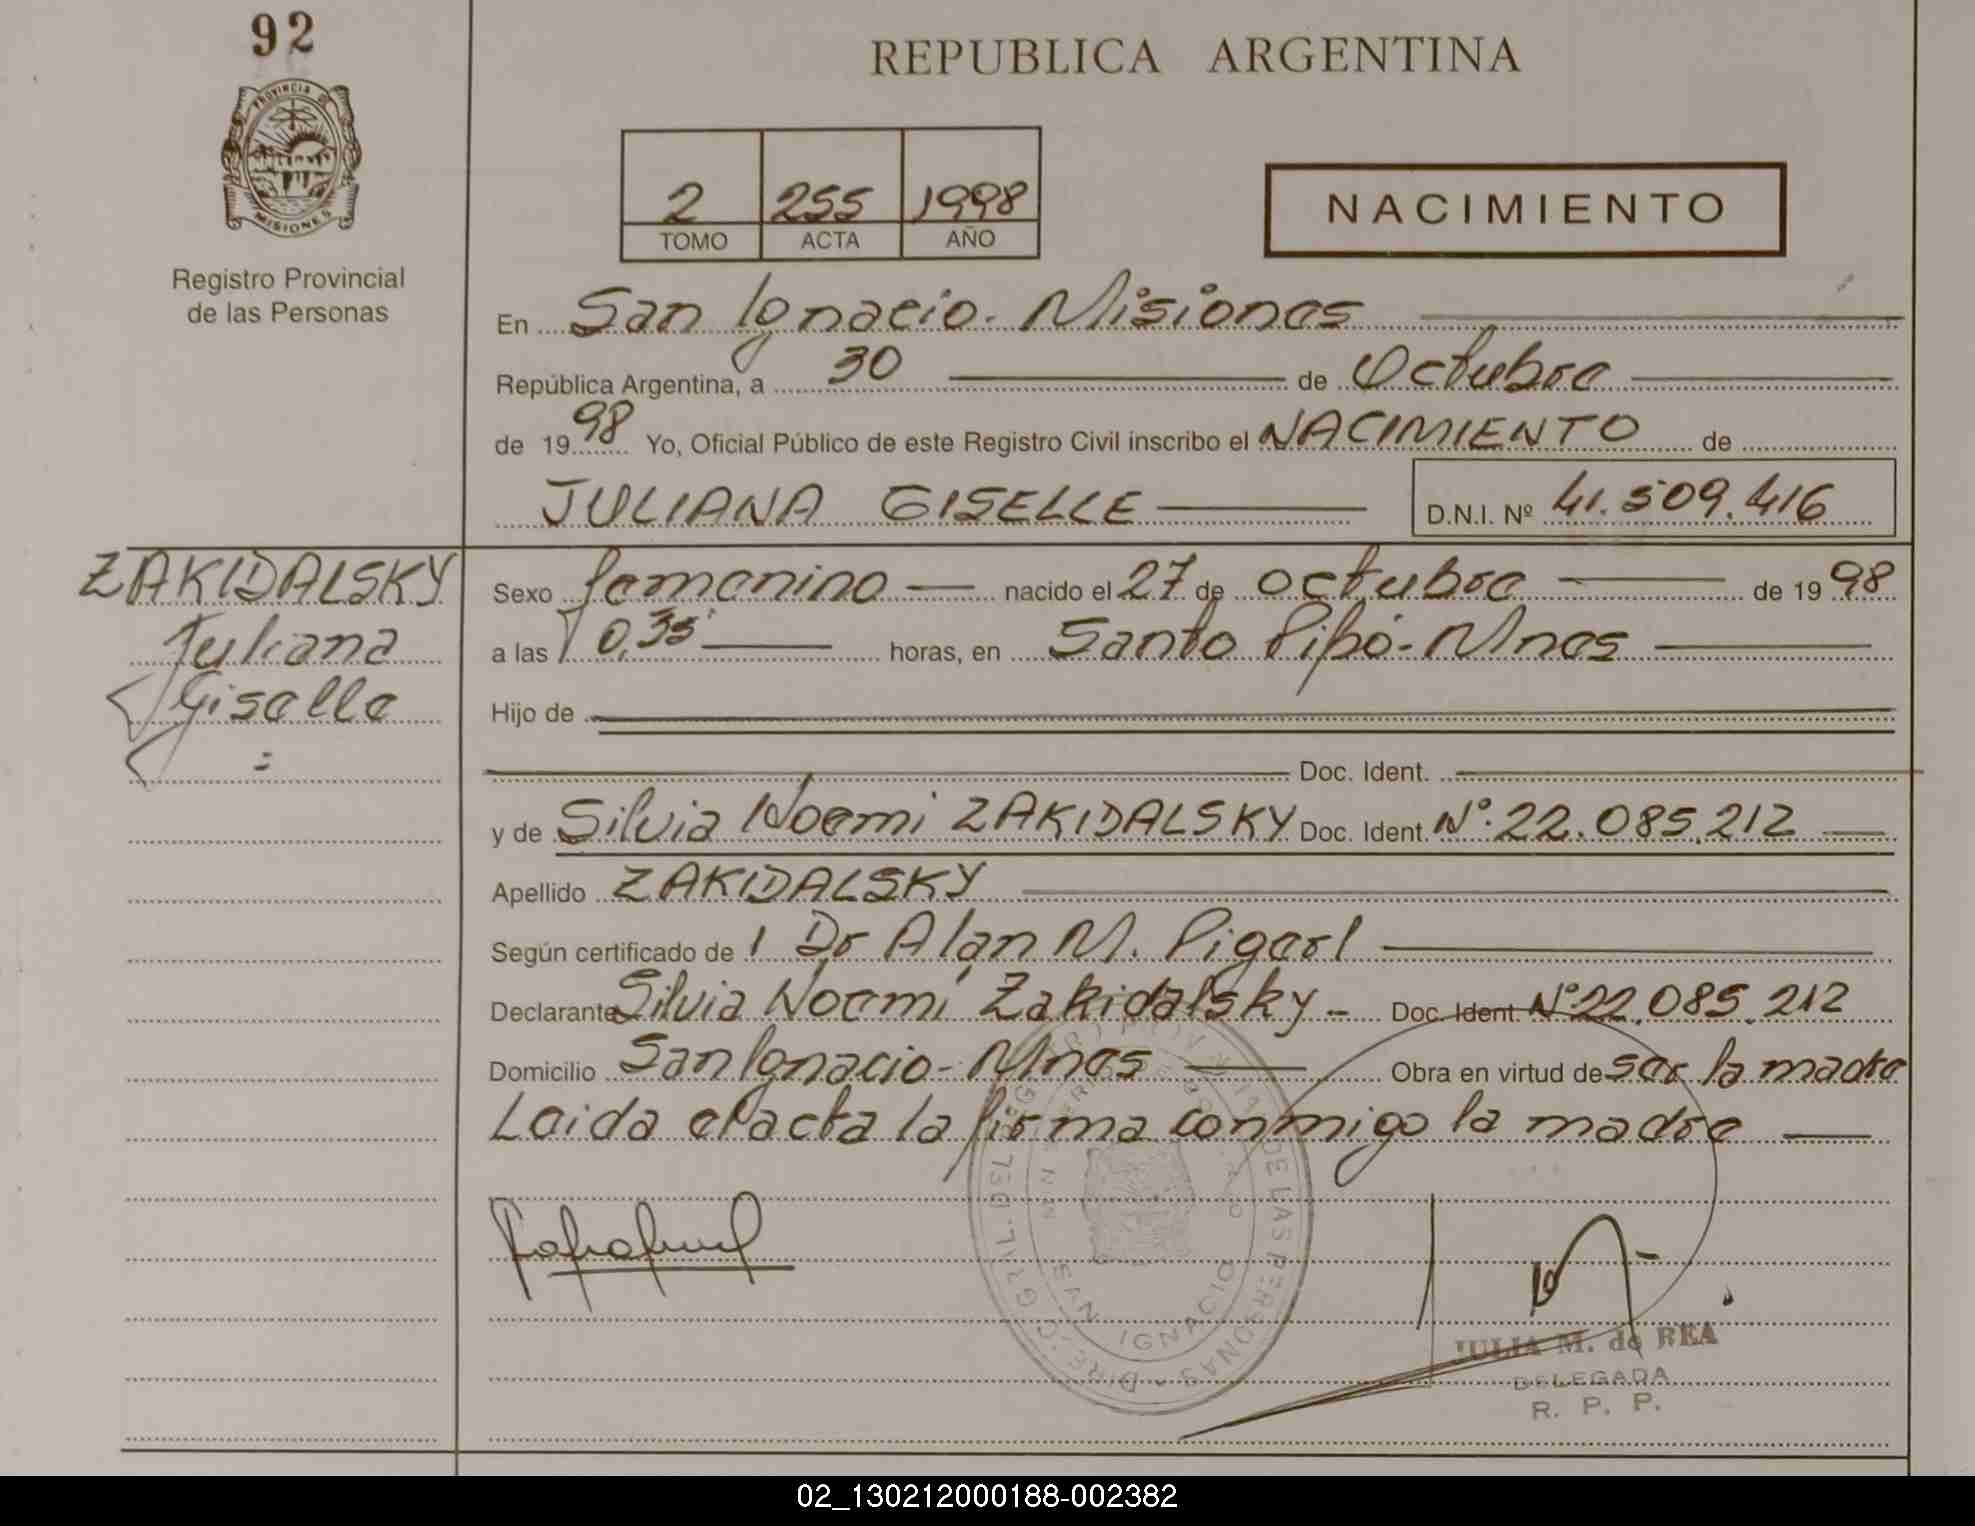 92
REPUBLICA ARGENTINA
PROVINCIA DE
MISIONES
Registro Provincial
de las Personas
2 255 1998
TOMO ACTA AÑO
NACIMIENTO
En San Ignacio. Misiones
República Argentina, a 30 de Octubre
de 1998 Yo, Oficial Público de este Registro Civil inscribo el NACIMIENTO de
JULIANA GISELLE D.N.I. Nº 41.509.416
ZAKIDALSKY
Juliana
Giselle
Sexo femenino nacido el 27 de octubre de 1998
a las 0,35 horas, en Santo Pipó-Mnes
Hijo de
Doc. Ident.
y de Silvia Noemi ZAKIDALSKY Doc. Ident. Nº 22.085.212
Apellido ZAKIDALSKY
Según certificado de Dr Alan M. Pigerl
Declarante Silvia Noemí Zakidalsky- Doc. Ident. Nº 22.085.212
Domicilio San Ignacio-Mnes Obra en virtud de ser la madre
Leida el acta la firma conmigo la madre
DIREC. GRAL. DEL REGISTRO PROVINCIAL DE LAS PERSONAS
SAN IGNACIO
JULIA M. de REA
DELEGADA
R. P. P.
02_130212000188-002382